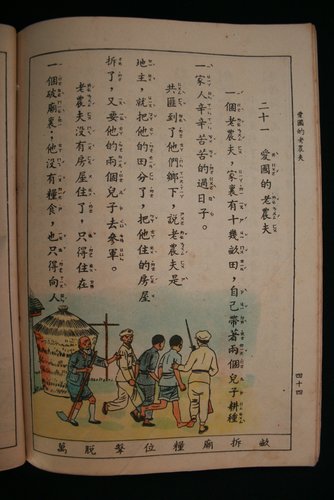 愛國的老農夫
二十一 愛國的老農夫
一個老農夫,家裏有十幾畝田,自己帶著兩個兒子耕種
一家人辛辛苦苦的過日子。
共匪到了他們鄉下,說老農夫是
地主,就把他的田分了,把他住的房屋
拆了,又要他的兩個兒子去參軍。
老農夫沒有房屋住了,只得住在
一個破廟裏;他沒有糧食,也只得向人
四十四
畝拆廟糧位擊脫萬